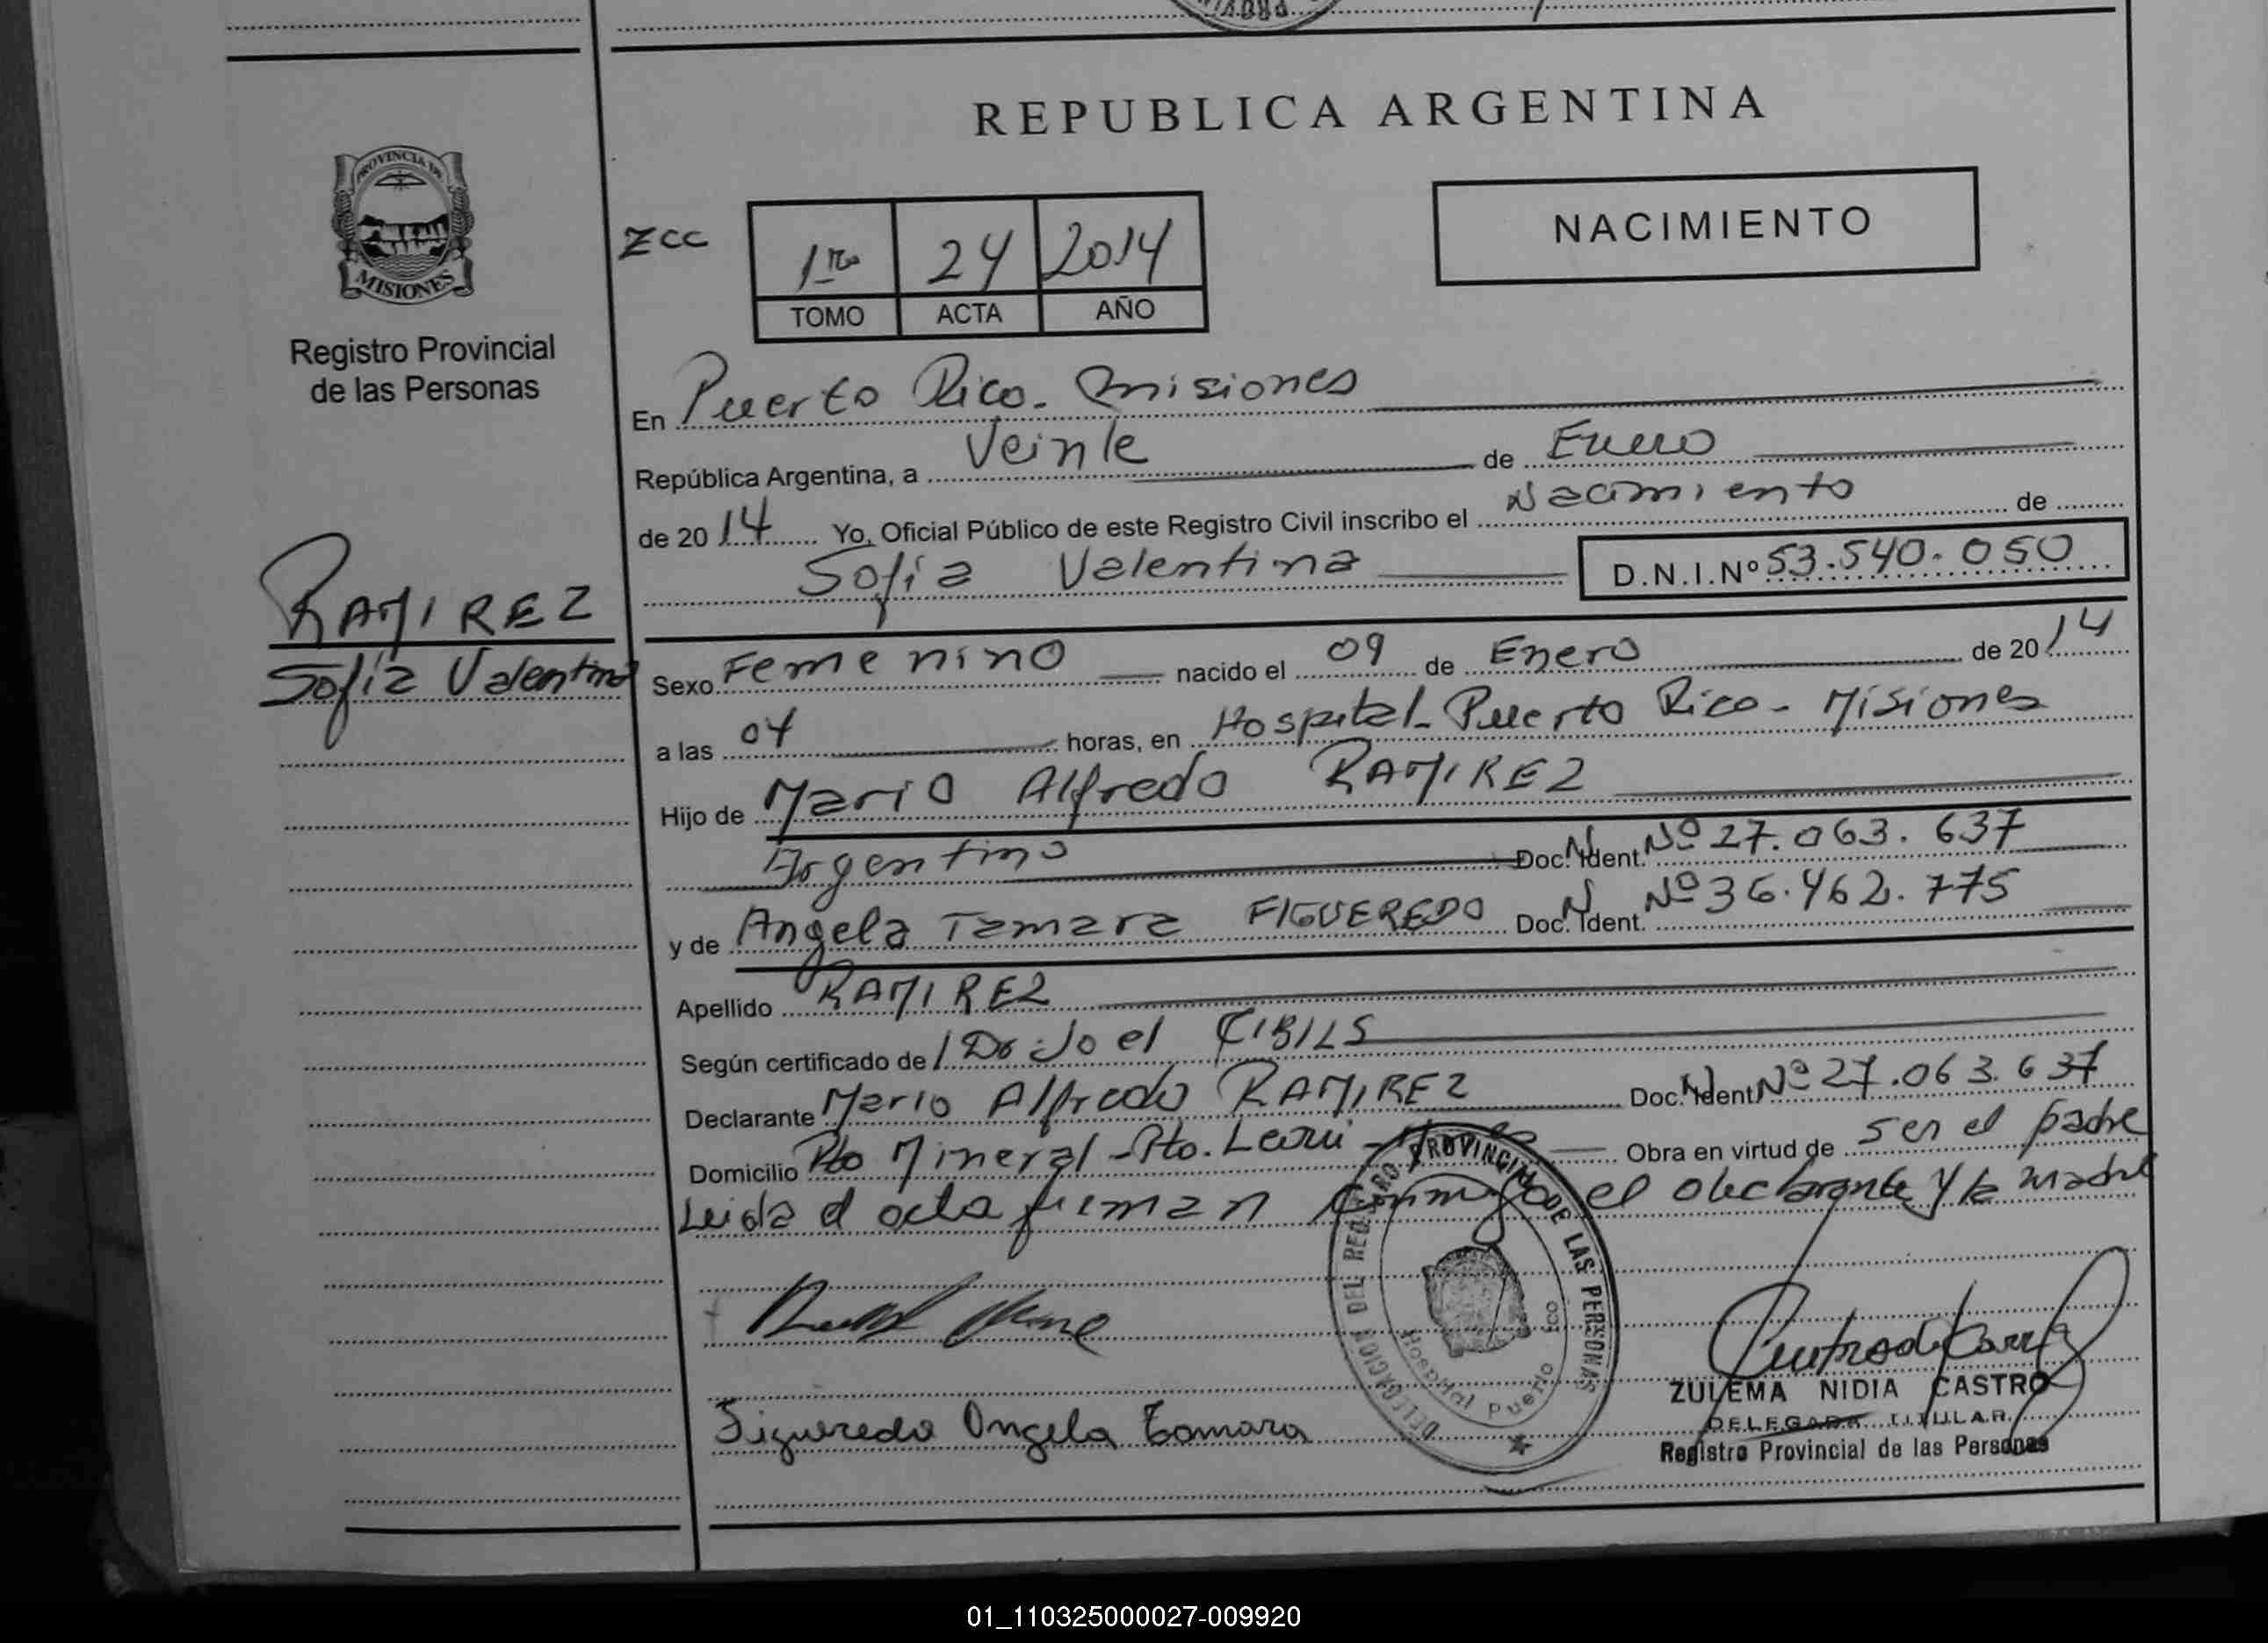 REPUBLICA ARGENTINA
PROVINCIA DE
MISIONES
Registro Provincial
de las Personas
ZCC
1ro 24 2014
TOMO ACTA AÑO
NACIMIENTO
En Puerto Rico - Misiones
República Argentina, a Veinte de Enero
de 2014 Yo, Oficial Público de este Registro Civil inscribo el Nacimiento de
Sofia Valentina D.N.I.Nº 53.540.050
RAMIREZ
Sofia Valentina
Sexo Femenino nacido el 09 de Enero de 2014
a las 04 horas, en Hospital - Puerto Rico - Misiones
Hijo de Mario Alfredo RAMIREZ
Argentino Doc. Ident. Nº 27.063.637
y de Angela Tamara FIGUEREDO Doc. Ident. Nº 36.462.775
Apellido RAMIREZ
Según certificado de l Dr Joel CIBILS
Declarante Mario Alfredo RAMIREZ Doc. Ident. Nº 27.063.637
Domicilio Pto Mineral - Pto. Leoni - Mnes Obra en virtud de ser el padre
Leida el acta firman conmigo el declarante y la madre
DELEGACION DEL REGISTRO PROVINCIAL DE LAS PERSONAS
Hospital Puerto Rico
Figueredo Angela Tamara
ZULEMA NIDIA CASTRO
DELEGADA TITULAR
Registro Provincial de las Personas
01_110325000027-009920